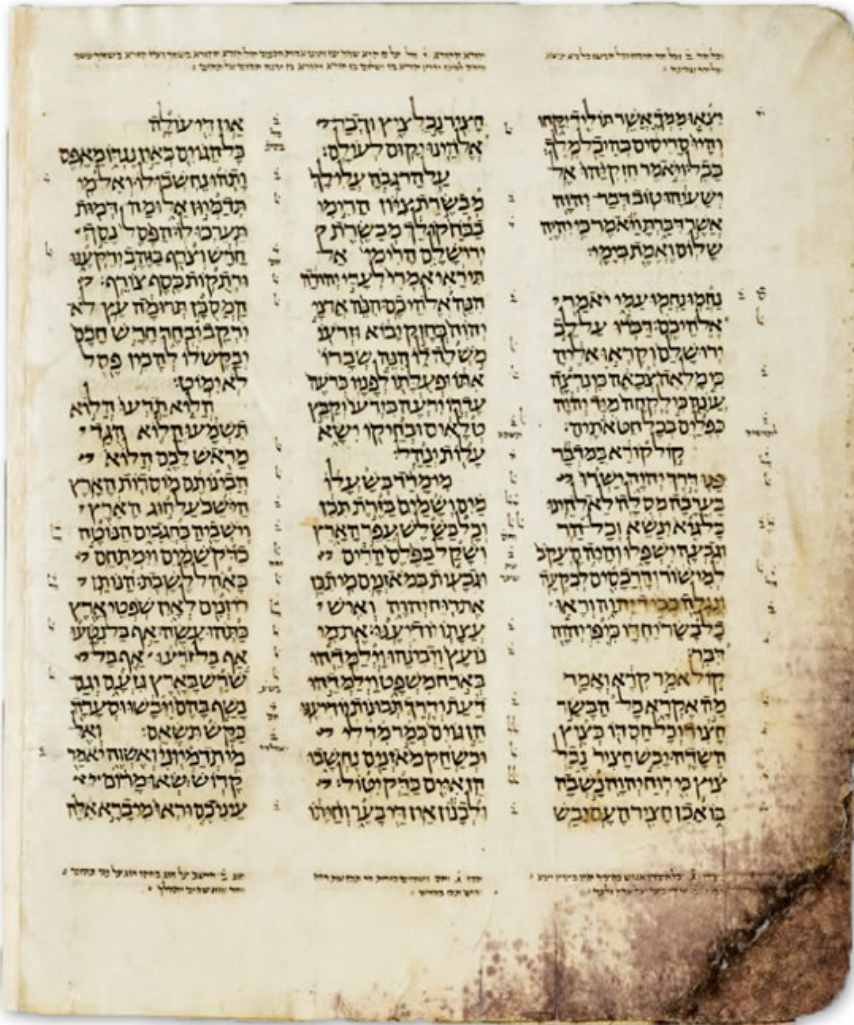 יצאו ממך אשר תוליד יקחו
והיו סריסים בהיכל מלך
בבל ויאמר חזקיהו אל
ישעיהו טוב דבר יהוה
אשר דברת ויאמר כי יהיה
שלום ואמת בימי
נחמו נחמו עמי יאמר
אלהיכם דברו על לב
ירושלם וקראו אליה
כי מלאה צבאה כי נרצה
עונה כי לקחה מיד יהוה
כפלים בכל חטאתיה׃
קול קורא במדבר
פנו דרך יהוה ישרו
בערבה מסלה לאלהינו
כל גיא ינשא וכל הר
וגבעה ישפלו והיה העקב
למישור והרכסים לבקעה
ונגלה כבוד יהוה וראו
כל בשר יחדו כי פי יהוה
דבר׃
קול אמר קרא ואמר
מה אקרא כל הבשר
חציר וכל חסדו כציץ
השדה יבש חציר נבל
ציץ כי רוח יהוה נשבה
בו אכן חציר העם יבש
חציר נבל ציץ ודבר
אלהינו יקום לעולם׃
על הר גבה עלי לך
מבשרת ציון הרימי
בכח קולך מבשרת
ירושלם הרימי אל
תיראי אמרי לערי יהודה
הנה אלהיכם הנה אדני
יהוה בחזק יבוא וזרעו
משלה לו הנה שכרו
אתו ופעלתו לפניו כרעה
עדרו ירעה בזרעו יקבץ
טלאים ובחיקו ישא
עלות ינהל׃
מי מדד בשעלו
מים ושמים בזרת תכן
וכל בשלש עפר הארץ
ושקל בפלס הרים
וגבעות במאזנים מי תכן
את רוח יהוה ואיש
עצתו יודיענו את מי
נועץ ויבינהו וילמדהו
בארח משפט וילמדהו
דעת ודרך תבונות יודיענו
הן גוים כמר מדלי
וכשחק מאזנים נחשבו
הן איים כדק יטול׃
ולבנון אין די בער וחיתו
אין די עולה
כל הגוים כאין נגדו מאפס
ותהו נחשבו לו ואל מי
תדמיון אל ומה דמות
תערכו לו הפסל נסך
חרש וצרף בזהב ירקענו
ורתקות כסף צורף׃
המסכן תרומה עץ לא
ירקב יבחר חרש חכם
יבקש לו להכין פסל
לא ימוט׃
הלוא תדעו הלוא
תשמעו הלוא הגד
מראש לכם הלוא
הבינתם מוסדות הארץ
הישב על חוג הארץ
וישביה כחגבים הנוטה
כדק שמים וימתחם
כאהל לשבת הנותן
רוזנים לאין שפטי ארץ
כתהו עשה אף בל נטעו
אף בל זרעו אף בל
שרש בארץ גזעם וגם
נשף בהם ויבשו וסערה
כקש תשאם׃ ואל
מי תדמיוני ואשוה יאמר
קדוש שאו מרום
עיניכם וראו מי ברא אלה